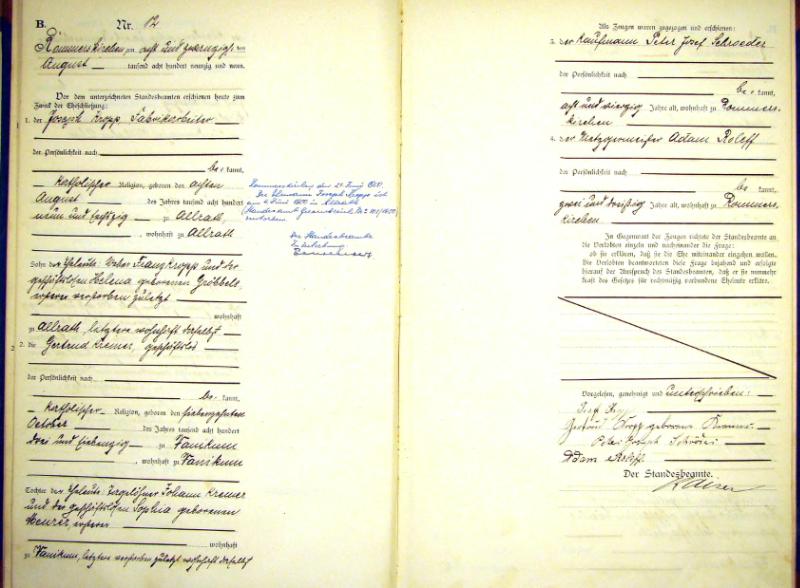 B. Nr. 12
Rommerskirchen am acht und zwanzigsten
August tausend acht hundert neunzig und neun.
Vor dem unterzeichneten Standesbeamten erschienen heute zum
Zweck der Eheschließung:
1. der Joseph Kropp Fabrikarbeiter
der Persönlichkeit nach
be kannt,
katholischer Religion, geboren den achten
August des Jahres tausend acht hundert
neun und sechzig zu Allrath
, wohnhaft zu Allrath
Sohn der Eheleute Weber Franz Kropp und der
geschäftslosen Helena geborenen Gröbbels
ersterer verstorben zuletzt
wohnhaft
zu Allrath, letztere wohnhaft daselbst
2. die Gertrud Kremer, geschäftslos
der Persönlichkeit nach
be kannt,
katholischer Religion, geboren den siebenzehnten
October des Jahres tausend acht hundert
drei und siebenzig zu Vanikum
, wohnhaft zu Vanikum
Tochter der Eheleute Tagelöhner Johann Kremer
und der geschäftslosen Sophia geborenen
ersterer
wohnhaft
zu Vanikum, letztere verstorben zuletzt wohnhaft daselbst
Rommerskirchen den Juni
Der Ehemann Joseph Kropp ist
am Juni in
(Standesamt
verstorben
Der Standesbeamte
In Vertretung
Als Zeugen waren zugezogen und erschienen:
3. der Kaufmann Peter Josef Schroeder
der Persönlichkeit nach
be kannt,
acht und vierzig Jahre alt, wohnhaft zu Rommers-
kirchen
4. der Metzgermeister Adam Roleff
der Persönlichkeit nach
be kannt,
zwei und dreißig Jahre alt, wohnhaft zu Rommers-
kirchen
In Gegenwart der Zeugen richtete der Standesbeamte an
die Verlobten einzeln und nacheinander die Frage:
ob sie erklären, daß sie die Ehe miteinander eingehen wollen.
Die Verlobten beantworteten diese Frage bejahend und erfolgte
hierauf der Ausspruch des Standesbeamten, daß er sie nunmehr
kraft des Gesetzes für rechtmäßig verbundene Eheleute erkläre.
Vorgelesen, genehmigt und unterschrieben:
Gertrud Kropp geborene Kremer
Peter Joseph
Adam Roleff
Der Standesbeamte.